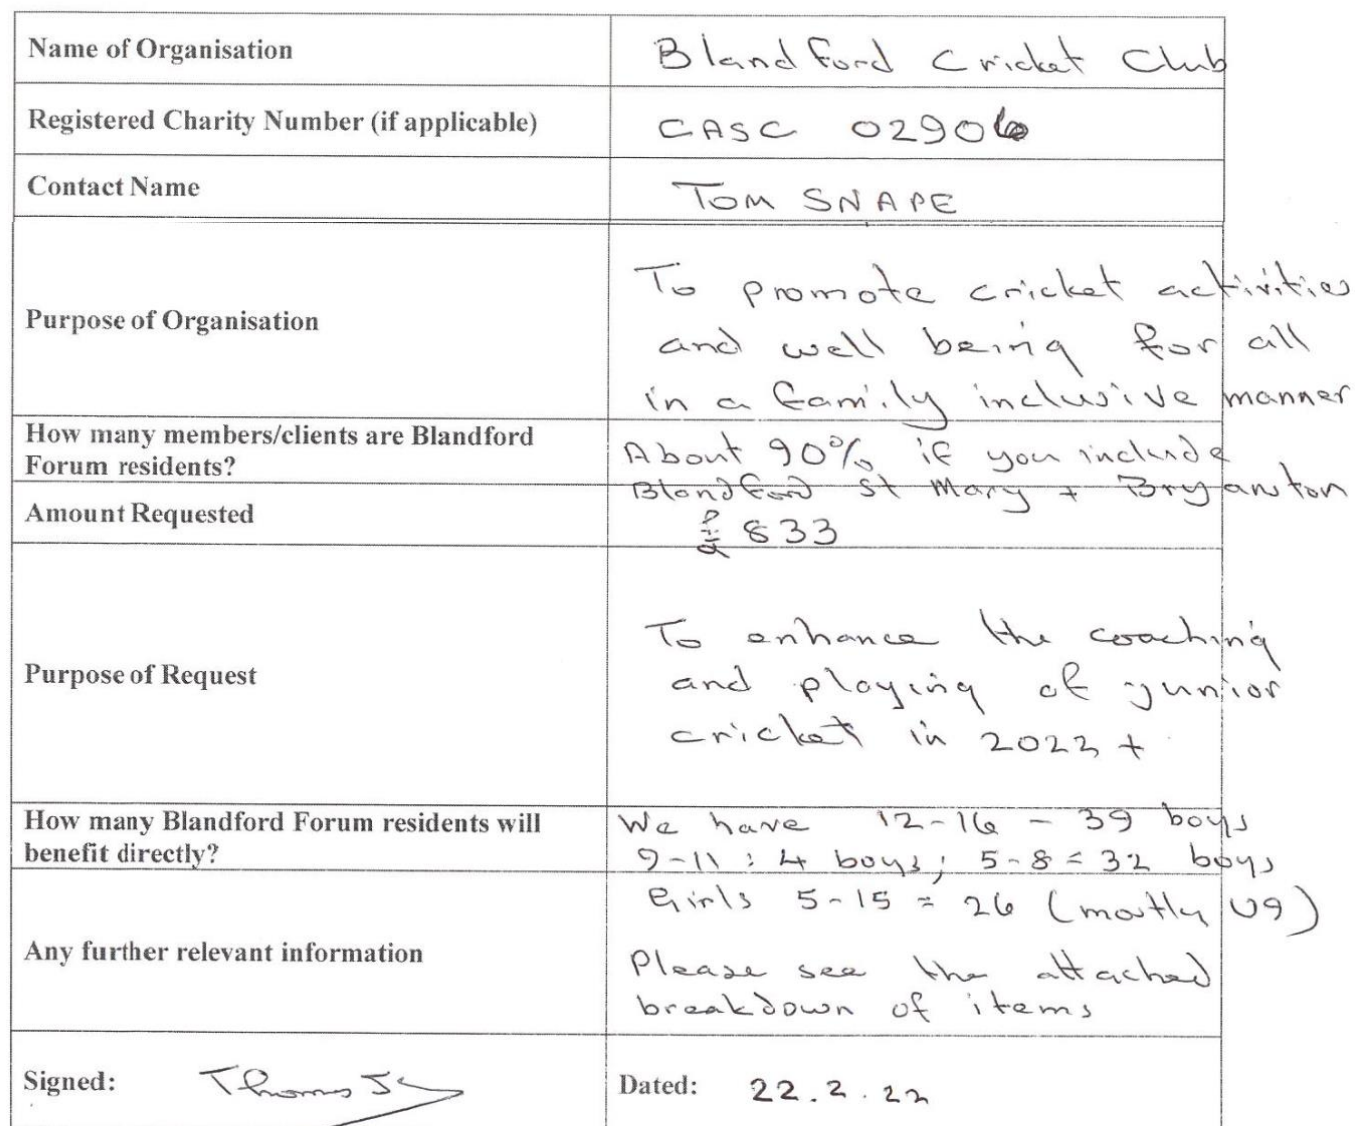 Name of Organisation
Blandford Cricket Club
Registered Charity Number (if applicable)
CASC 02906
Contact Name
TOM SNAPE
Purpose of Organisation
To promote cricket activities
and well being for all
in a family inclusive manner
How many members/clients are Blandford
Forum residents?
About 90% if you include
Blandford St Mary + Bryanston
Amount Requested
£833
Purpose of Request
To enhance the coaching
and playing of junior
cricket in 2022 +
How many Blandford Forum residents will
benefit directly?
We have 12-16 - 39 boys
9-11 : 4 boys; 5-8 = 32 boys
Girls 5-15 = 26 (mostly U9)
Any further relevant information
Please see the attached
breakdown of items
Signed: Thomas
Dated: 22.2.22